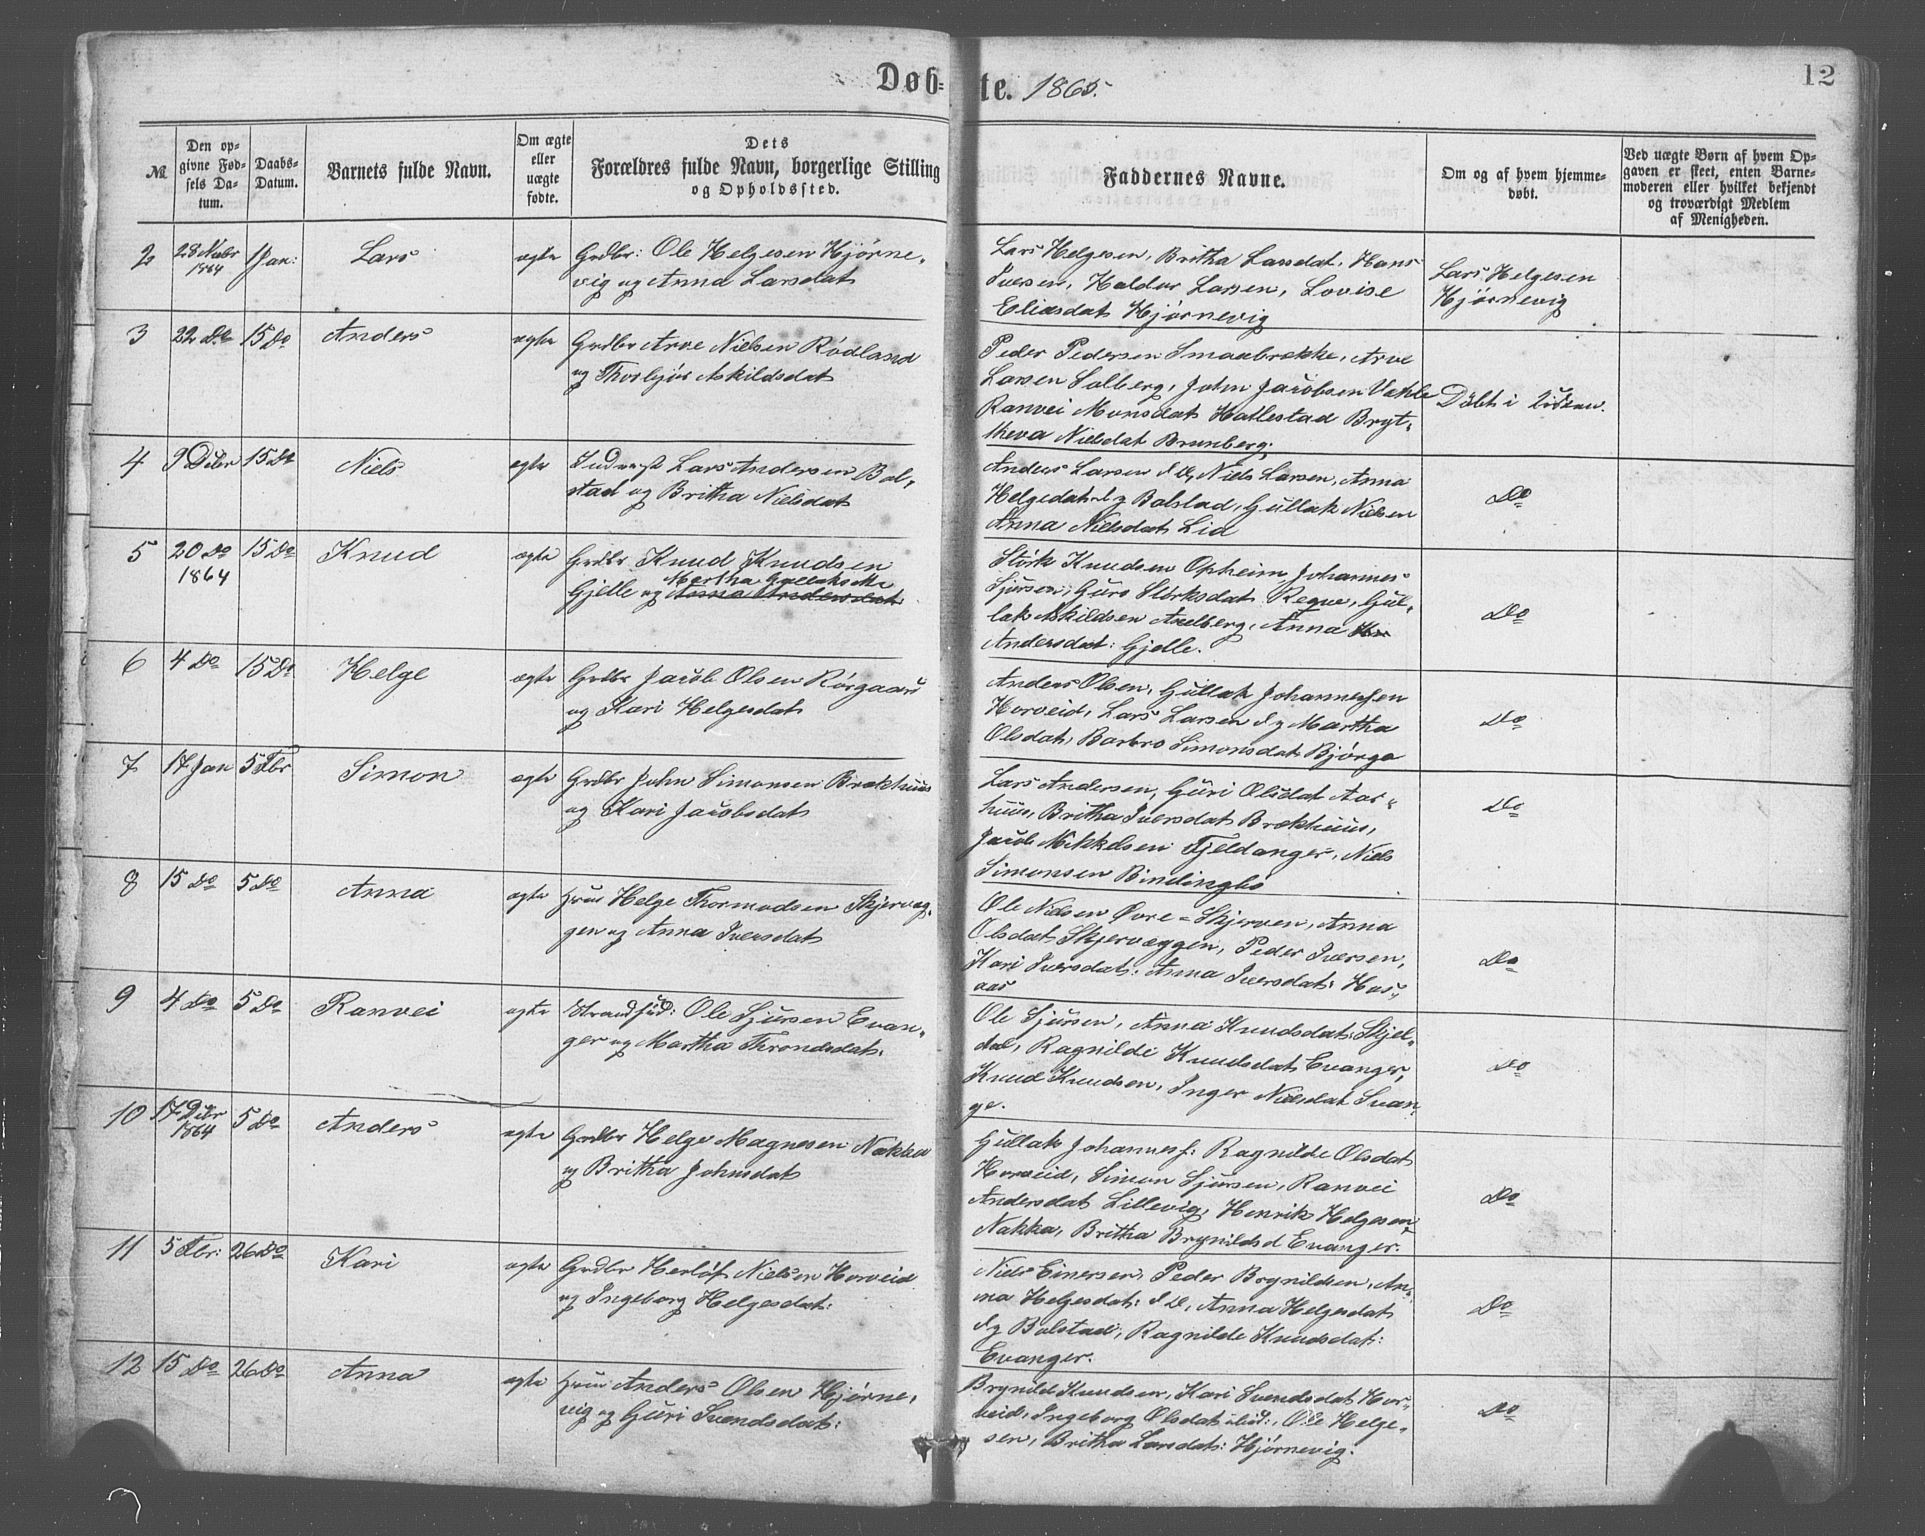 Døb=
te. 1865.
12
№
Den op-
givne Fød-
sels Da-
tum.
Daabs-
Datum.
Barnets fulde Navn.
Om ægte
eller
uægte
fødte.
Dets
Forældres fulde Navn, borgerlige Stilling
og Opholdssted.
Faddernes Navne.
Om og af hvem hjemme-
døbt.
Ved uægte Børn af hvem Op-
gaven er skeet, enten Barne-
moderen eller hvilket bekjendt
og troværdigt Medlem
af Menigheden.
2
28 Novbr
1864
1 Jan:
Lars
ægte
Grdbr: Ole Helgesen Hjørne-
vig og Anna Larsdat
Lars Helgesen, Britha Larsdat, Hans
Iversen, Haldor Larsen, Lovise
Eliasdat Hjørnevig
Lars Helgesen
Hjørnevig
3
22 Do
15 Do
Anders
ægte
Grdbr Arve Nielsen Rødland
og Thorbjør Askildsdat
Peder Pedersen Smaabrække, Arve
Larsen Solberg, John Jacobsen Væhle
Ranvei Monsdat Hallestad Bryt-
theva Nielsdat Brunberg.
Døbt i Kirken.
4
9 Debr
15 Do
Niels
ægte
Inderst Lars Andersen Bol-
stad og Britha Nielsdat
Anders Larsen Niels Larsen, Anna
Helgedat Bolstad, Gullak Nielsen
Anna Nielsdat Lid
Do
5
20 Do
1864
15 Do
Knud
ægte
Grdbr Knud Knudsen
Martha Gullaksdtr
Gjelle og Anna Andersdat
Størk Knudsen Opheim Johannes
Sjursen, Guro Størksdat Reque, Gul-
lak Askildsen Andberg, Anna
Andersdat: Gjelle.
Do
6
4 Do
15 Do
Helge
ægte
Grdbr Jacob Olsen Rørgaard
og Kari Helgesdat
Anders Olsen, Gullak Johannessen
Horveid, Lars Larsen Martha
Olsdat, Barbro Simonsdat Bjørgo
Do
7
17 Jan
5 Fbr
Simon
ægte
Grdbr John Simonsen Brækhuus
og Kari Jacobsdat
Lars Andersen, Guri Olsdat Aar-
huus, Britha Iversdat Brækhuus,
Jacob Mikkelsen Fjeldanger, Niels
Simonsen Bindingbø
Do
8
15 Do
5 Do
Anna
ægte
Huus Helge Thormodsen Skjerveg-
gen og Anna Iversdat
Ole Nielsen Øvre-Skjerven, Anna
Olsdat Skjervæggen, Peder Iversen,
Kari Iversdat: Anna Iversdat: Hor-
aas
Do
9
4 Do
5 Do
Ranvei
ægte
Strandsid: Ole Sjursen Evan-
ger og Martha Throndsdat:
Ole Sjursen, Anna Knudsdat: Skjel-
dal, Ragnilde Knudsdat Evanger,
Knud Knudsen, Inger Nielsdat Evan
ge.
Do
10
17 Debr
1864
5 Do
Anders
ægte
Grdbr Helge Magnesen Nakka
og Britha Johnsdat
Gullak Johanness: Ragnilde Olsdat
Horveid, Simon Sjursen, Ranvei
Andersdat Lillevig, Henrik Helgesen,
Nakka, Britha Brynildsd Evanger.
Do
11
5 Fbr:
26 Do
Kari
ægte
Grdbr Herlof Nielsen Horveid
og Ingeborg Helgesdat:
Niels Einersen, Peder Brynildsen, An-
na Helgesdat: Anna Helgesdat
Bolstad, Ragnilde Knudsdat:
Evanger.
Do
12
15 Do
26 Do
Anna
ægte
Huus Anders Olsen Hjørne-
vig og Guri Svendsdat:
Brynild Knudsen, Kari Svendsdat Hor-
veid, Ingeborg Olsdat ibid:, Ole Helge-
sen, Britha Larsdat: Hjørnevig.
Do